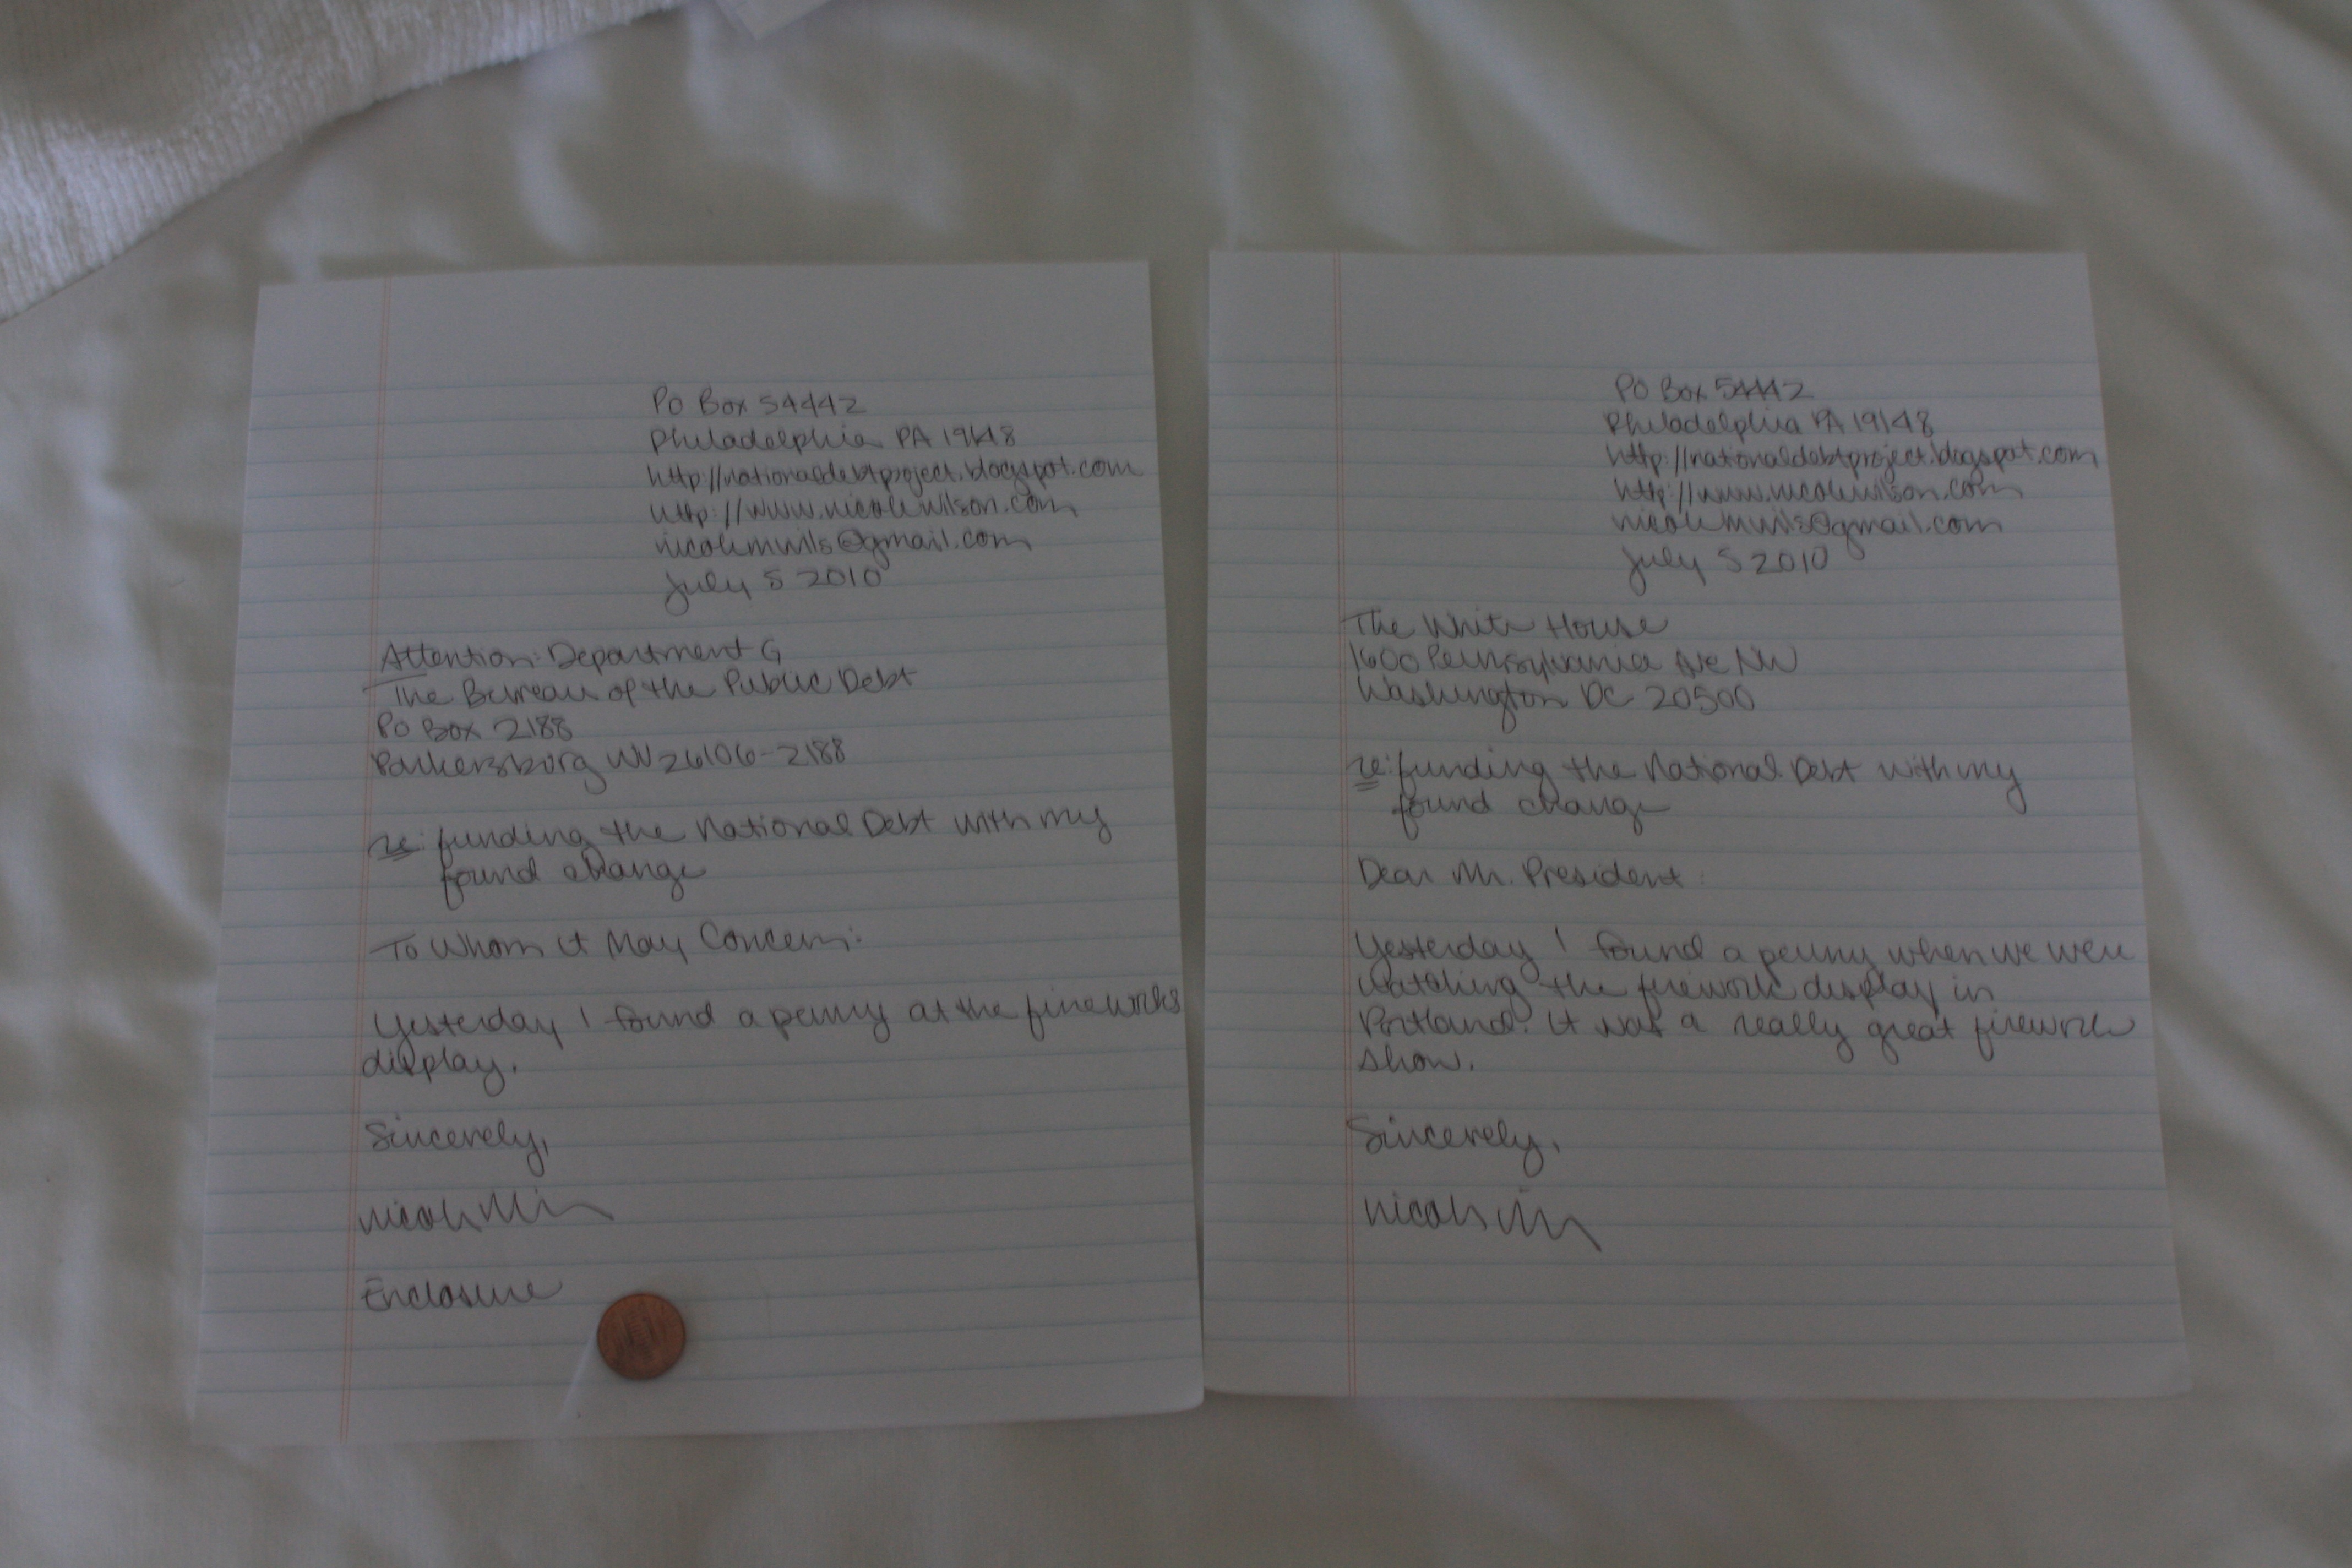 PO Box 54442
Philadelphia PA 19148
http://nationaldebtproject.blogspot.com
http://www.nicolewilson.com
nicolemwils@gmail.com
July 5 2010
Attention: Department G
The Bureau of the Public Debt
PO Box 2188
Parkersburg WV 26106-2188
re: funding the National Debt with my
found change
To Whom it May Concern:
Yesterday I found a penny at the fireworks
display.
Sincerely,
Nicole
Enclosure
PO Box 54442
Philadelphia PA 19148
http://nationaldebtproject.blogspot.com
http://www.nicolewilson.com
nicolemwils@gmail.com
July 5 2010
The White House
1600 Pennsylvania Ave NW
Washington DC 20500
re: funding the National Debt with my
found change
Dear Mr. President:
Yesterday I found a penny when we were
watching the firework display in
Portland. It was a really great firework
show.
Sincerely,
Nicole